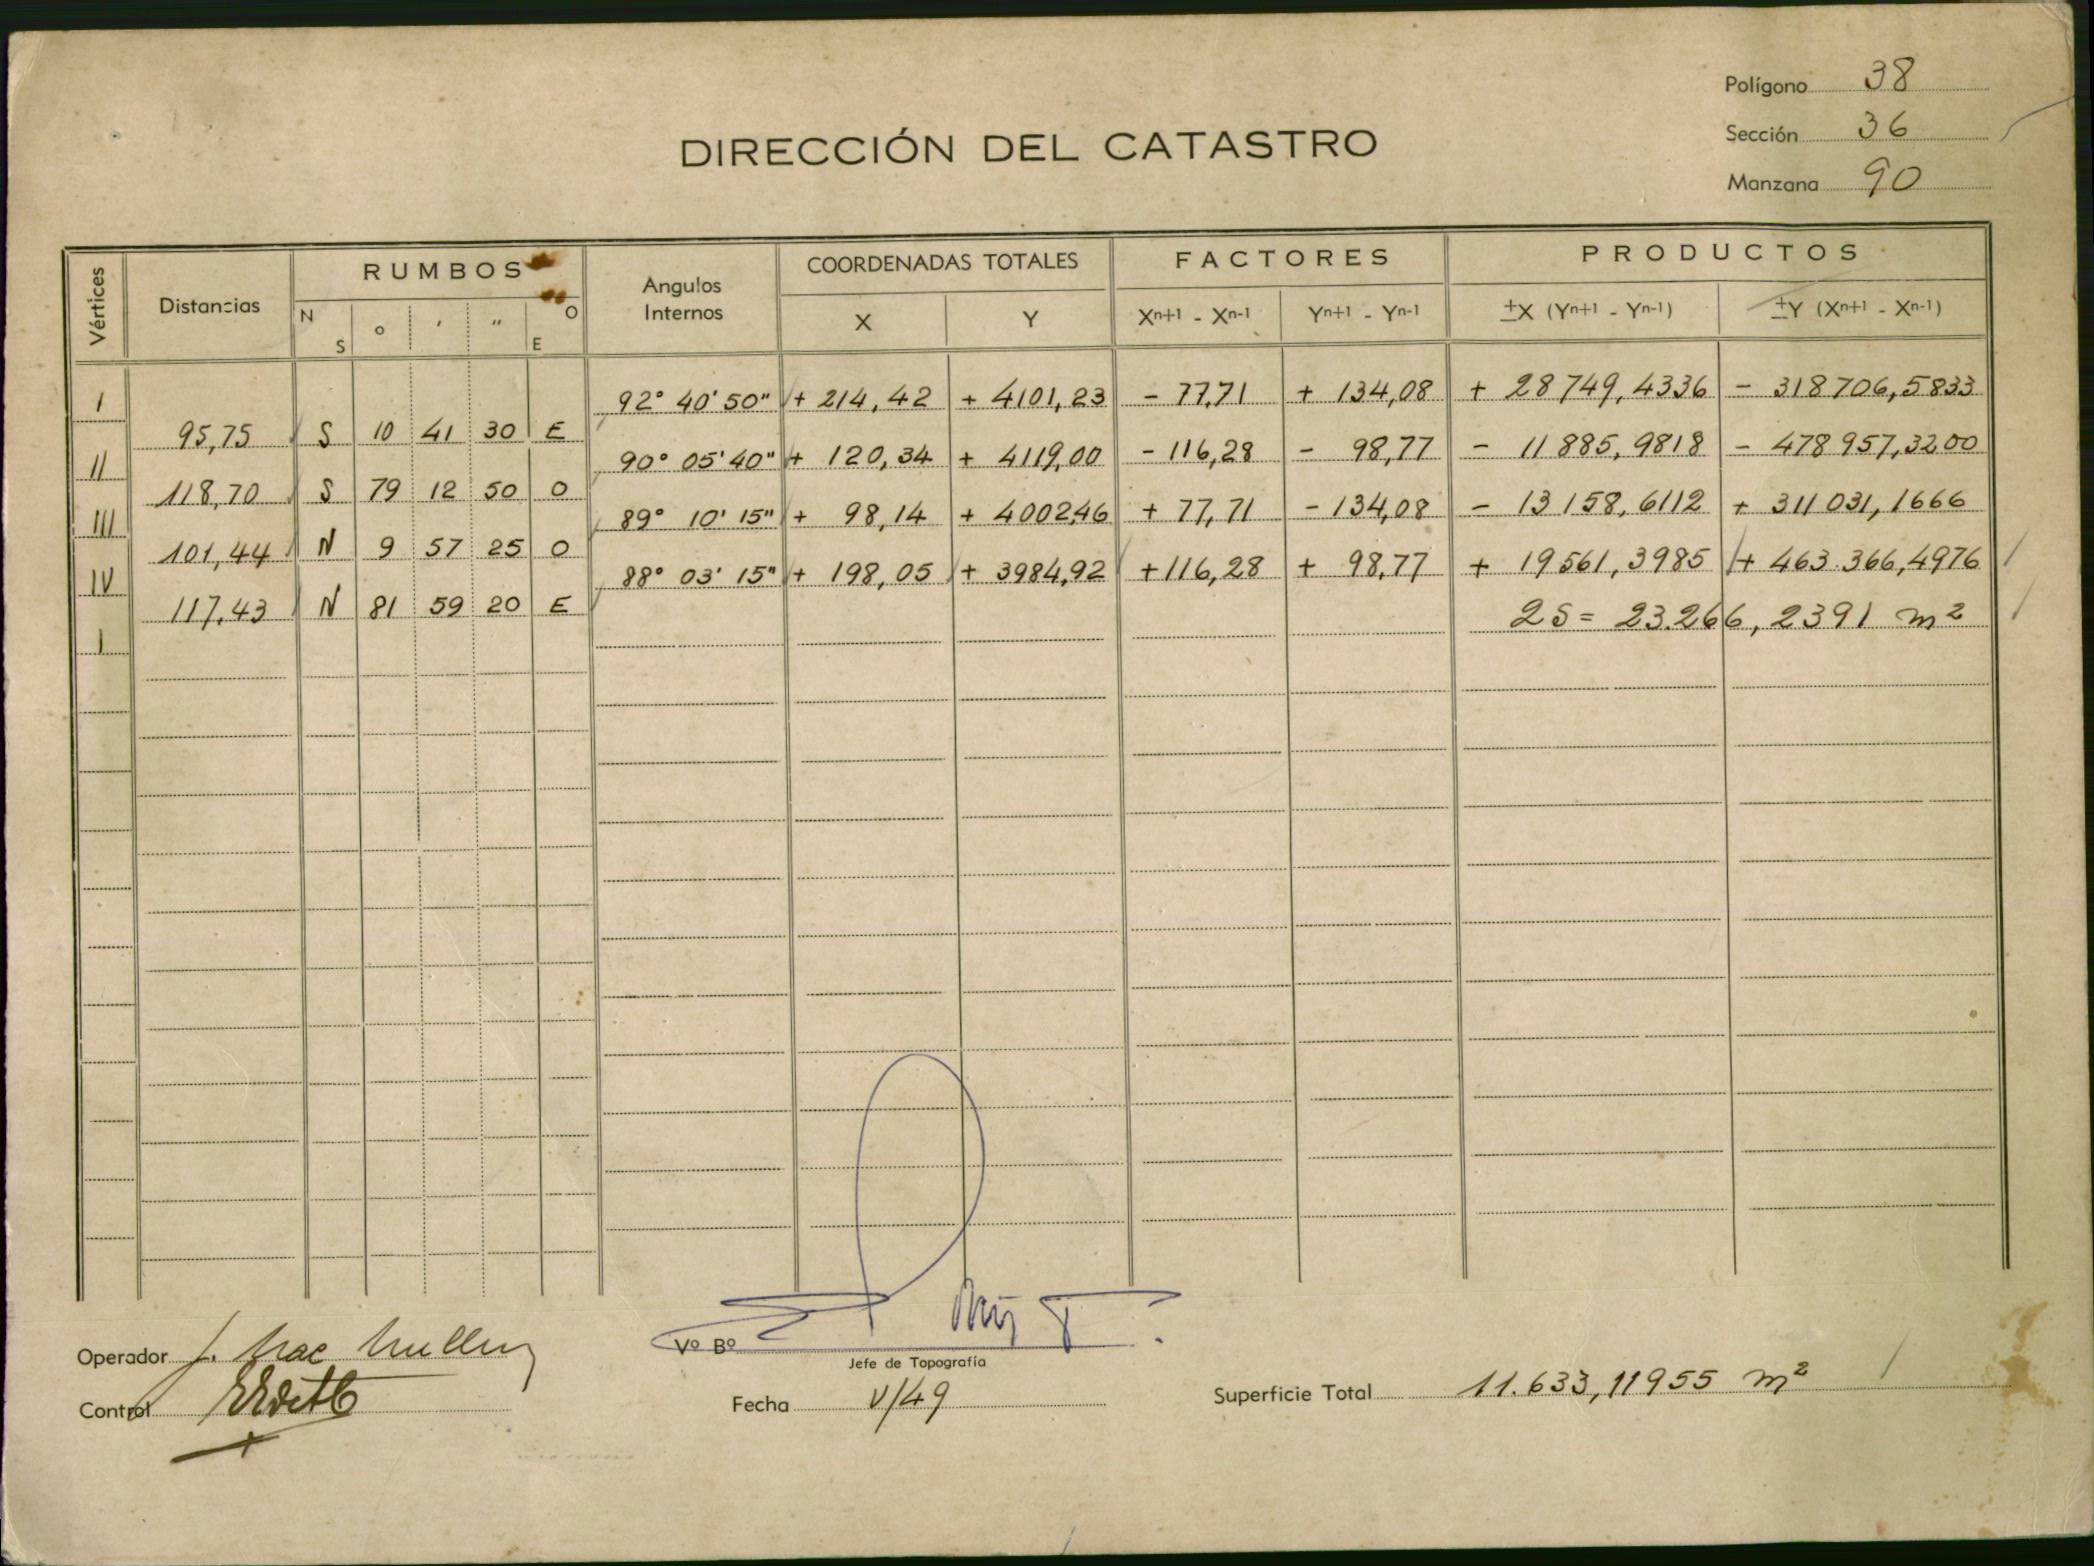 Polígono 38
Sección 36
Manzana 90
DIRECCIÓN DEL CATASTRO
Vértices Distancias RUMBOS Angulos Internos COORDENADAS TOTALES FACTORES PRODUCTOS
N S ° ' " E O X Y Xn+1 - Xn-1 Yn+1 - Yn-1 ±X (Yn+1 - Yn-1) ±Y (Xn+1 - Xn-1)
I 92° 40' 50" + 214,42 + 4101,23 - 77,71 + 134,08 + 28749,4336 - 318706,5833
95,75 S 10 41 30 E
II 90° 05' 40" + 120,34 + 4119,00 - 116,28 - 98,77 - 11885,9818 - 478957,3200
118,70 S 79 12 50 O
III 89° 10' 15" + 98,14 + 4002,46 + 77,71 - 134,08 - 13158,6112 + 311031,1666
101,44 N 9 57 25 O
IV 88° 03' 15" + 198,05 + 3984,92 + 116,28 + 98,77 + 19561,3985 + 463.366,4976
117,43 N 81 59 20 E
2S = 23.266,2391 m²
I
Operador J. Mac Mullen
Vº Bº
Jefe de Topografía
Control
Fecha V/49
Superficie Total 11.633,11955 m²